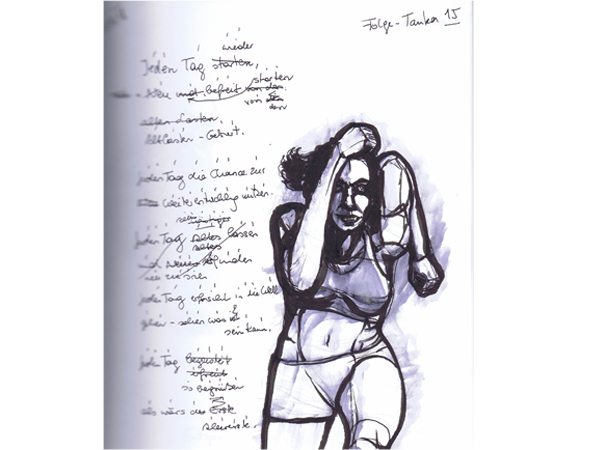 Folge-Tanka 15
wieder
Jeden Tag starten,
starten
befreit von den
von
alten Lasten.
Altlasten - Geburt.
jeden Tag die Chance zur
Weiterentwicklung nutzen.
jeden Tag altes lassen
altes
jeden Tag erfrischt in die Welt
gehen - sehen was ist
sein kann.
jeden Tag begeistert
erfreut
so begrüßen
als wärs der Erste
allererste.